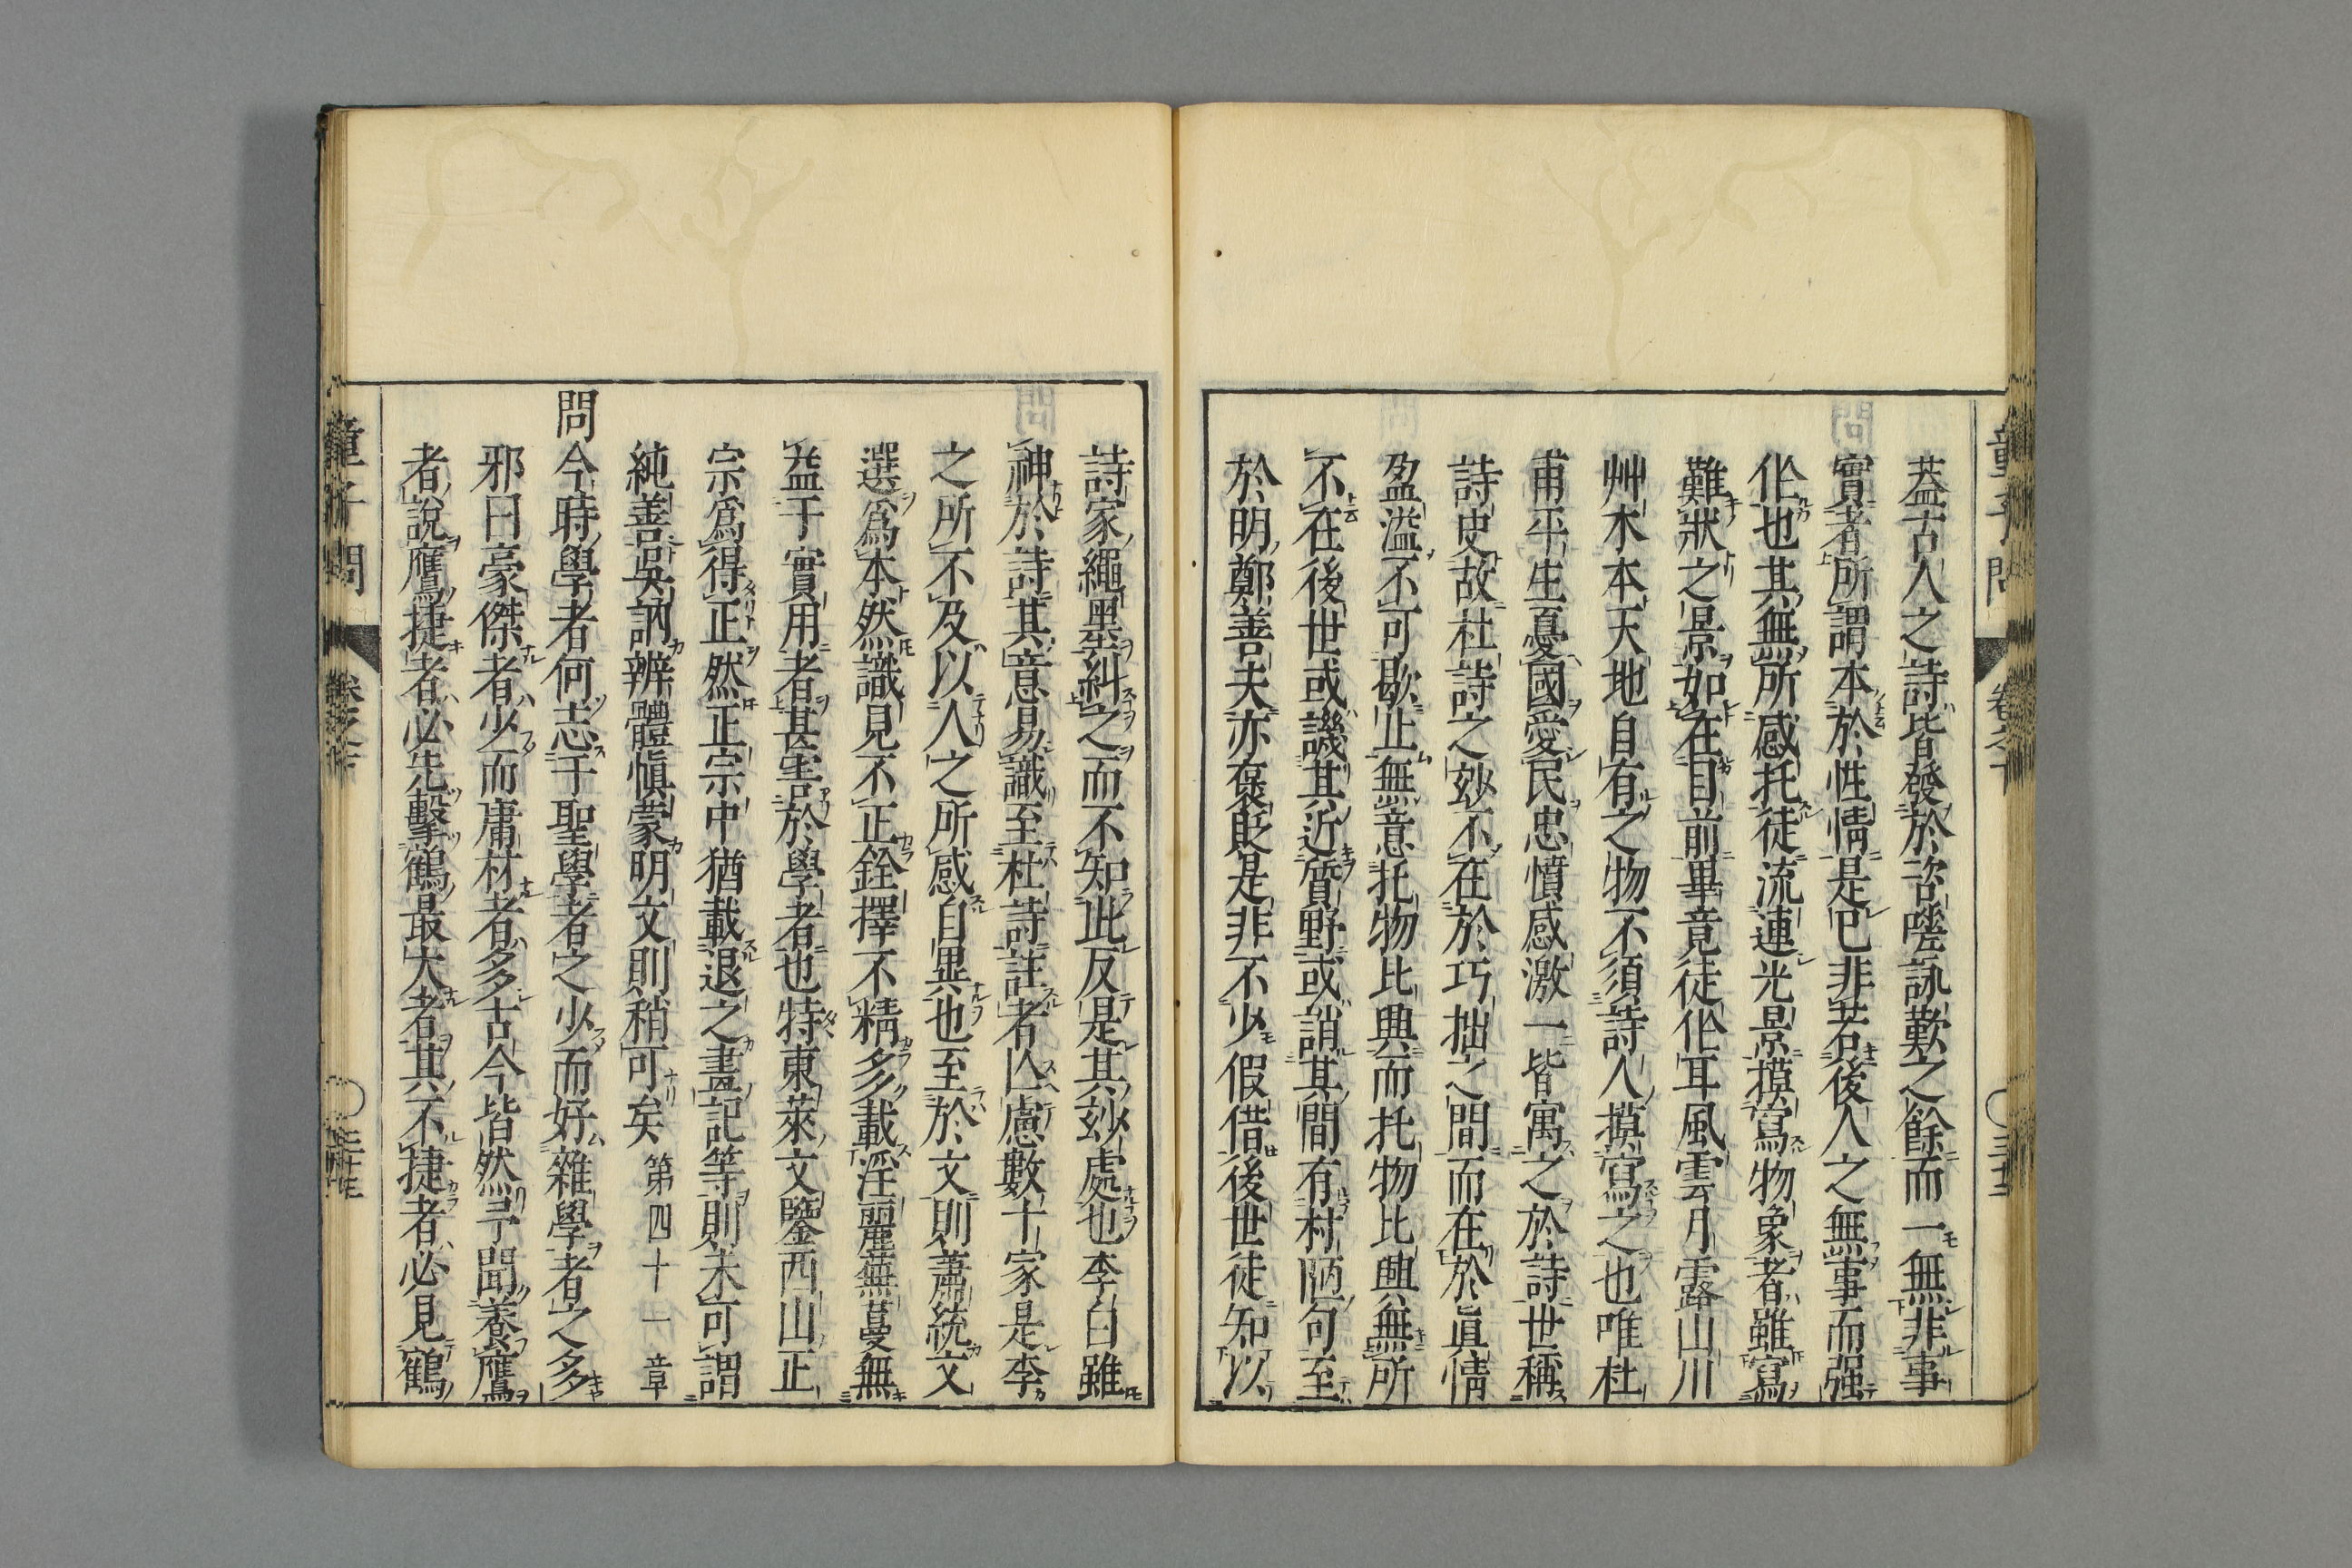 蓋古人之詩皆發於咨嗟詠歎之餘而一無非事
實者所謂本於性情是已非若後人之無事而强
作也其無所感托徒流連光景摸寫物象者雖寫
難狀之景如在目前畢竟徒作耳風雲月露山川
艸木本天地自有之物不須詩人摸寫之也唯杜
甫平生憂國愛民忠憤感激一皆寓之於詩世稱
詩史故杜詩之妙不在於巧拙之間而在於眞情
盈溢不可歇止無意托物比興而托物比興無所
不在後世或譏其近質野或誚其間有村陋句至
於明鄭善夫亦褒貶是非不少假借後世徒知以
詩家繩墨糾之而不知此反是其妙處也李白雖
神於詩其意易識至杜詩註者亾慮數十家是李
之所不及以人之所感自異也至於文則蕭統文
選爲本然識見不正銓擇不精多載淫麗蕪蔓無
益于實用者甚害於學者也特東萊文鑒西山正
宗爲得正然正宗中猶載退之畫記等則未可謂
純善吳訥辨體愼蒙明文則稍可矣 第四十一章
問今時學者何志于聖學者之少而好雜學者之多
邪曰豪傑者少而庸材者多古今皆然予聞養鷹
者說鷹捷者必先擊鶴最大者其不捷者必見鶴
童子問 卷之下